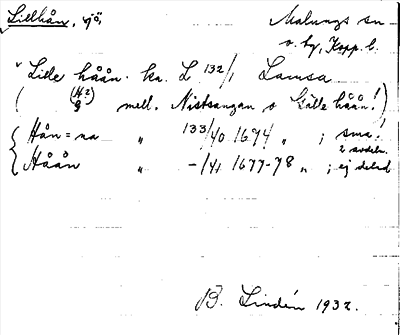 Lillhån, sjö,
Malungs sn
o. by, Kopp. l.
Lille håån. ka. L 132/1 Lamsa
( (H2) mell. Nistsangan o Gälle håån!)
Hån = na " 133/40 1674 " ; sma!
2 avdeln.
Håån " -/41 1677-78 " ; ej delad
B. Lindén 1932.